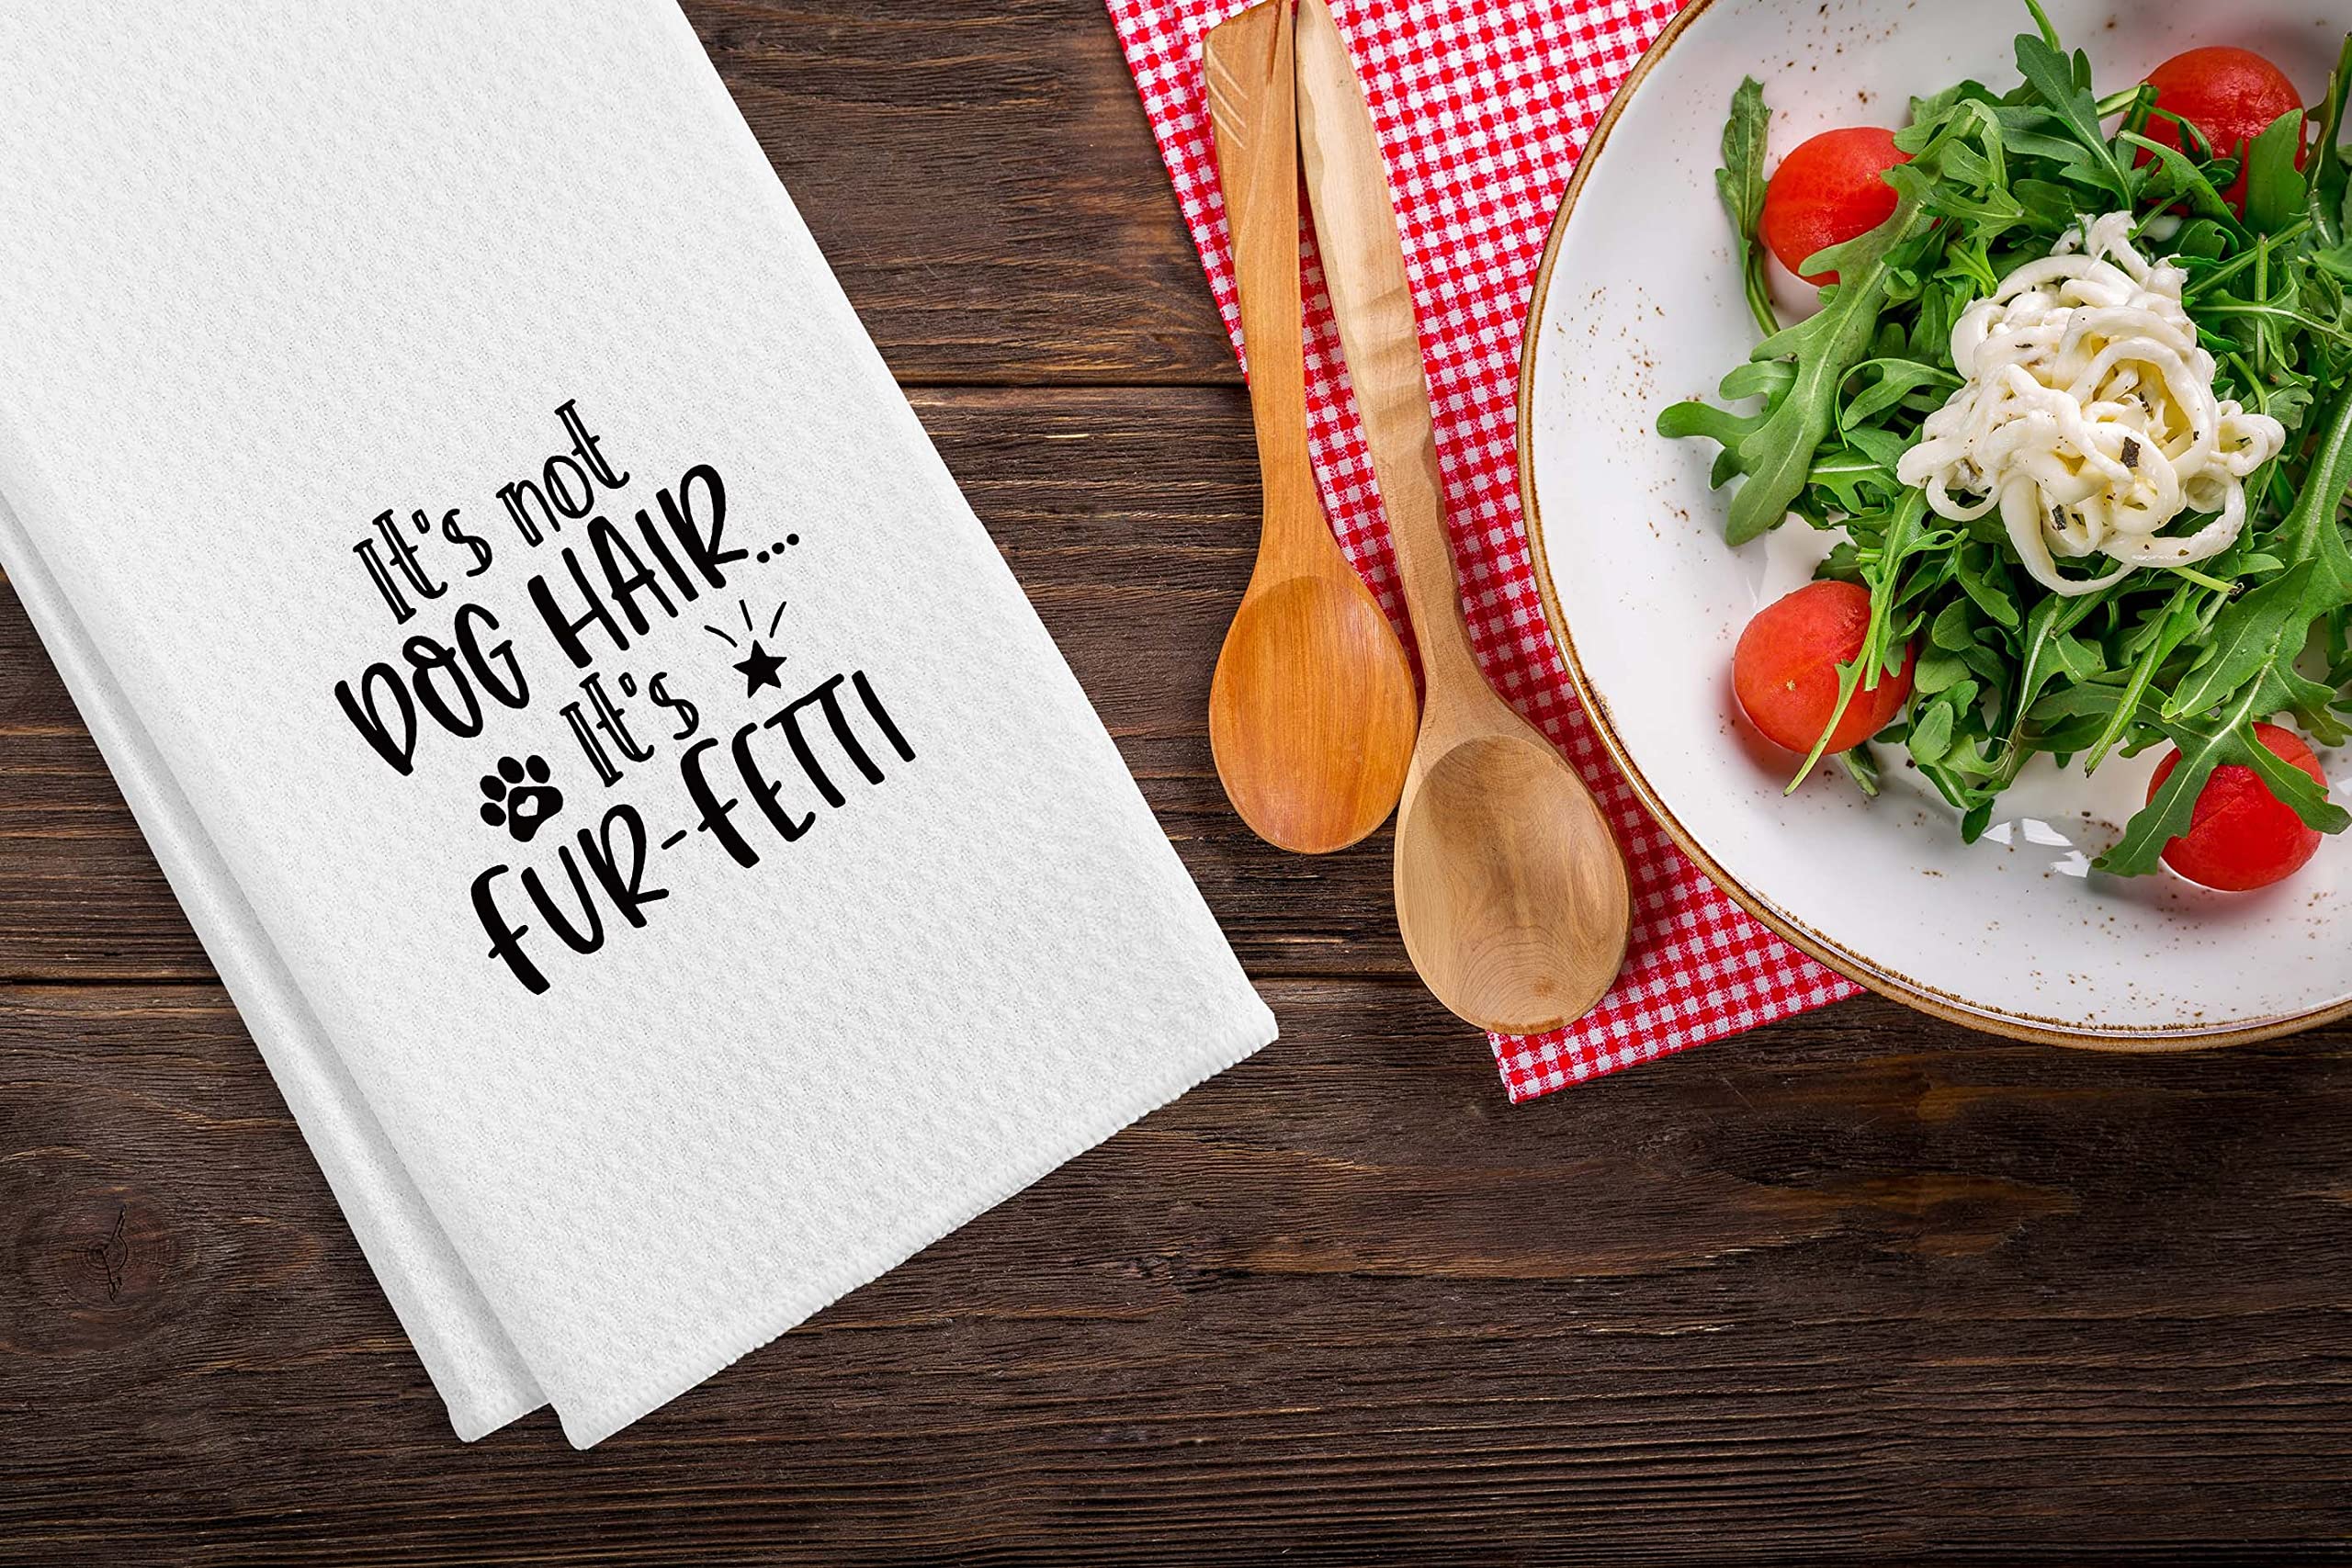 It's not
DOG HAIR...
It's
FUR-FETTI